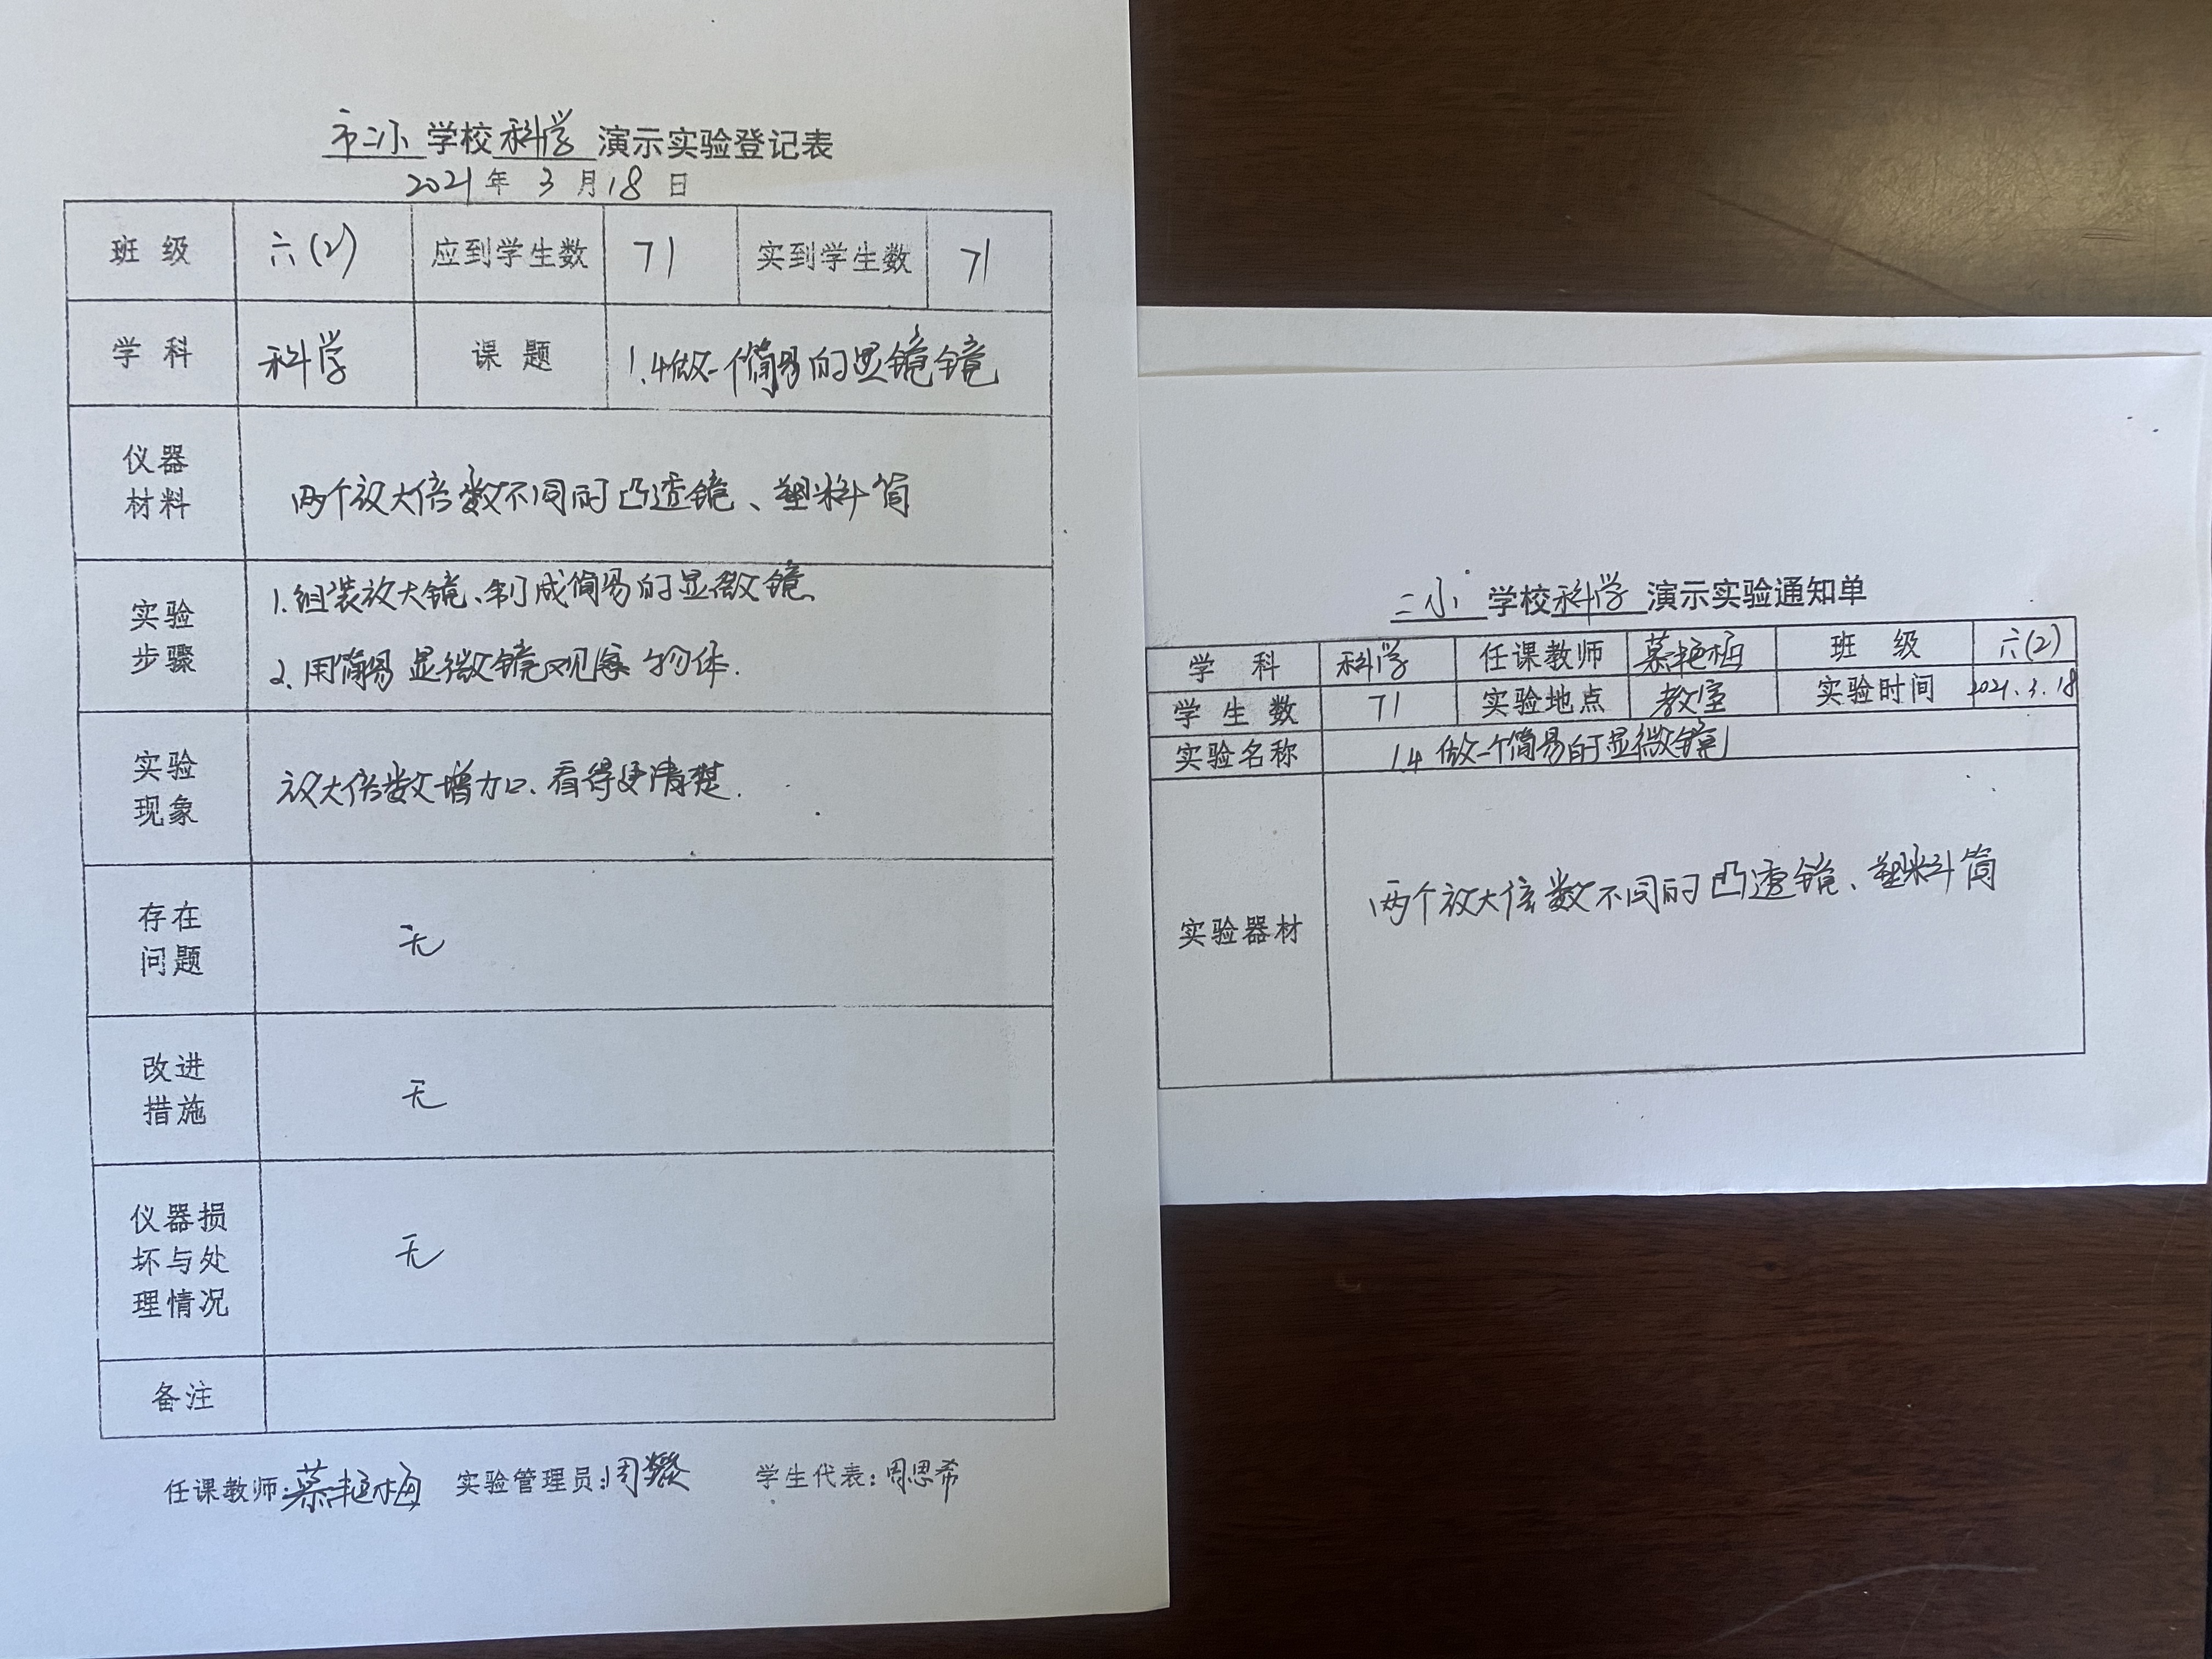 市二小 学校 科学 演示实验登记表
2021 年 3 月 18 日
班 级 六(2) 应到学生数 71 实到学生数 71
学 科 科学 课 题 1.4做一个简易的显镜镜
仪器
材料
两个放大倍数不同的凸透镜、塑料筒
实验
步骤
1.组装放大镜、制成简易的显微镜、
2.用简易显微镜观察物体.
实验
现象
放大倍数增加、看得更清楚.
存在
问题
无
改进
措施
无
仪器损
坏与处
理情况
无
备注
任课教师:慕艳梅 实验管理员:周 学生代表:周思希
二小 学校 科学 演示实验通知单
学 科 科学 任课教师 慕艳梅 班 级 六(2)
学 生 数 71 实验地点 教室 实验时间 2021.3.18
实验名称 1.4 做一个简易的显微镜
实验器材 两个放大倍数不同的凸透镜、塑料筒